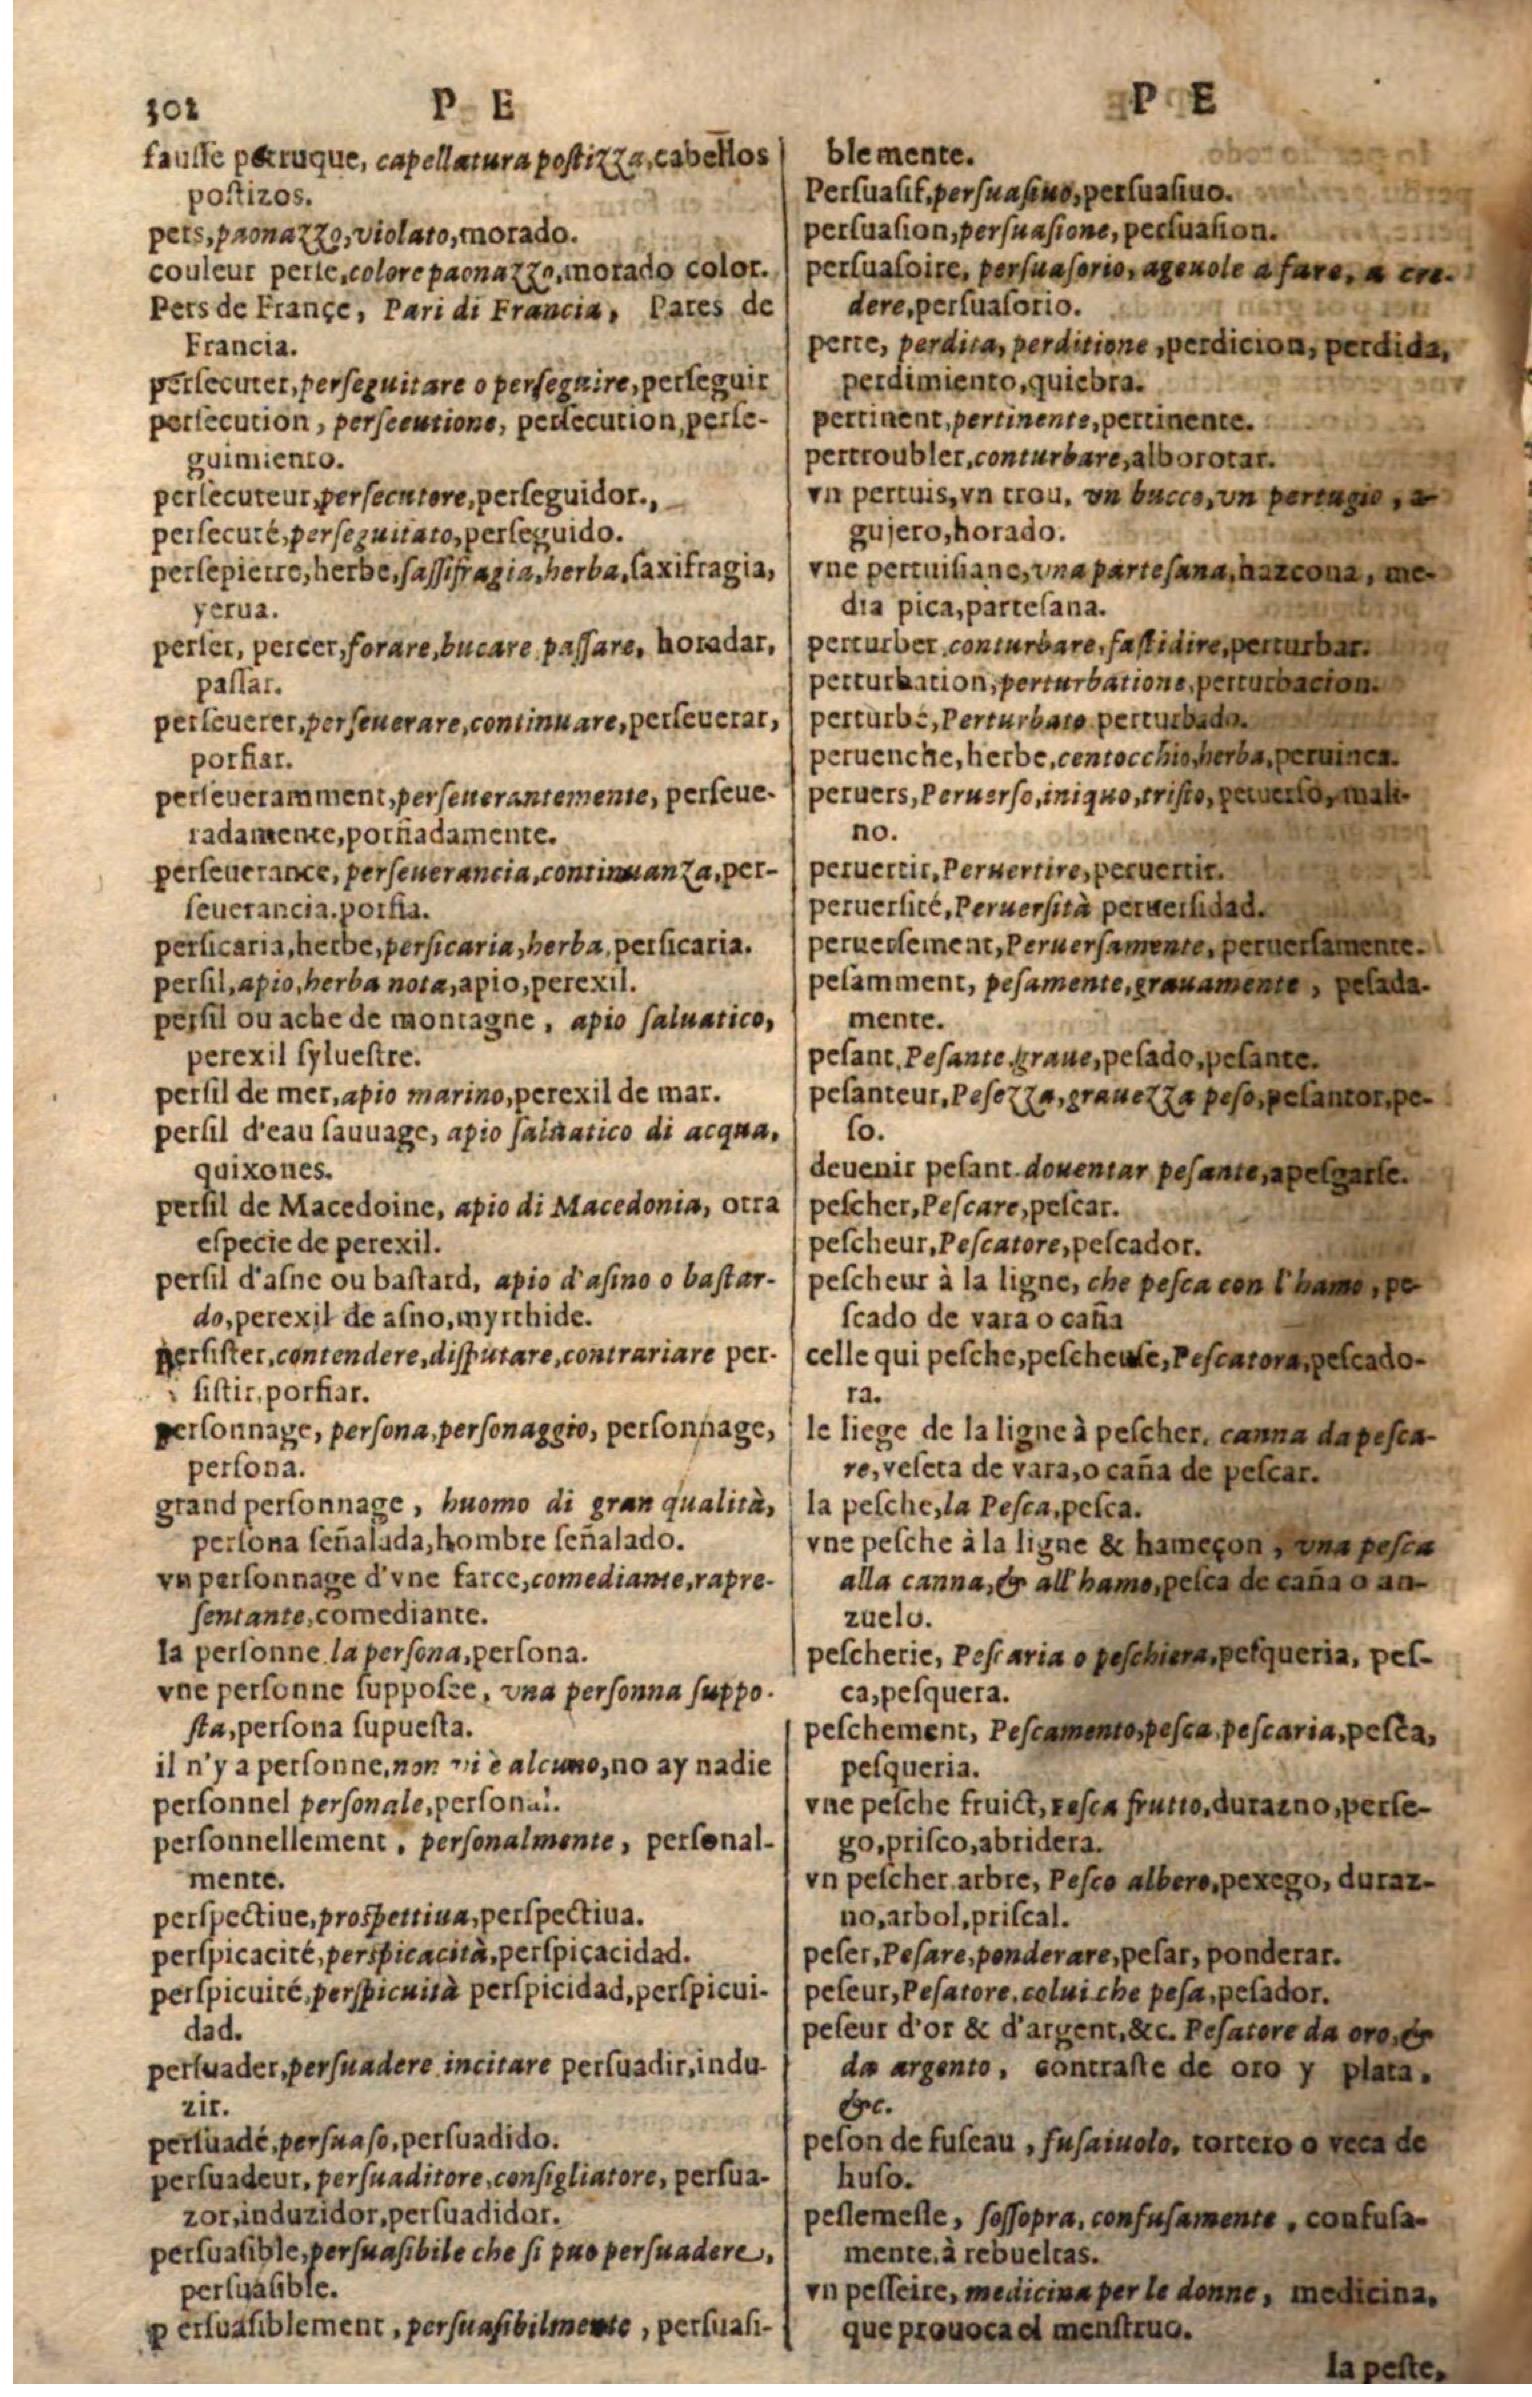 302 P E
fausse perruque, capellatura postizza, cabellos
postizos.
pers, paonazzo, violato, morado.
couleur perse, colore paonazzo, morado color.
Pers de Françe, Pari di Francia, Pares de
Francia.
persecuter, perseguitare o perseguire, perseguir
persecution, persecutione, persecution, perse-
guimiento.
persecuteur, persecutore, perseguidor.,
persecuté, perseguitato, perseguido.
persepierre, herbe, sassifragia, herba, saxifragia,
yerua.
perser, percer, forare, bucare passare, horadar,
passar.
perseuerer, perseuerare, continuare, perseuerar,
porfiar.
perseueramment, perseuerantemente, perseue-
radamente, porfiadamente.
perseuerance, perseuerancia, continuanza, per-
seuerancia. porfia.
persicaria, herbe, persicaria, herba, persicaria.
persil, apio, herba nota, apio, perexil.
persil ou ache de montagne, apio saluatico,
perexil syluestre.
persil de mer, apio marino, perexil de mar.
persil d'eau sauuage, apio saluatico di acqua,
quixones.
persil de Macedoine, apio di Macedonia, otra
especie de perexil.
persil d'asne ou bastard, apio d'asino o bastar-
do, perexil de asno, myrrhide.
persister, contendere, disputare, contrariare per-
sistir, porfiar.
personnage, persona, personaggio, personnage,
persona.
grand personnage, huomo di gran qualità,
persona señalada, hombre señalado.
vn personnage d'vne farce, comediante, rapre-
sentante, comediante.
la personne la persona, persona.
vne personne supposee, vna personna suppo-
sta, persona supuesta.
il n'y a personne, non vi è alcuno, no ay nadie
personnel personale, personal.
personnellement, personalmente, personal-
mente.
perspectiue, prospettiua, perspectiua.
perspicacité, perspicacità, perspicacidad.
perspicuité, perspicuità perspicidad, perspicui-
dad.
persuader, persuadere incitare persuadir, indu-
zir.
persuadé, persuaso, persuadido.
persuadeur, persuaditore, consigliatore, persua-
zor, induzidor, persuadidor.
persuasible, persuasibile che si puo persuadere,
persuasible.
persuasiblement, persuasibilmente, persuasi-
P E
blemente.
Persuasif, persuasiuo, persuasiuo.
persuasion, persuasione, persuasion.
persuasoire, persuasorio, ageuole a fare, a cre-
dere, persuasorio.
perte, perdita, perditione, perdicion, perdida,
perdimiento, quiebra.
pertinent, pertinente, pertinente.
pertroubler, conturbare, alborotar.
vn pertuis, vn trou, vn bucco, vn pertugio, a-
gujero, horado.
vne pertuisiane, vna partesana, hazcona, me-
dia pica, partesana.
perturber, conturbare, fastidire, perturbar.
perturbation, perturbatione, perturbacion.
perturbé, Perturbato perturbado.
peruenche, herbe, centocchio, herba, peruinca.
peruers, Peruerso, iniquo, tristo, peruerso, mali-
no.
peruertir, Peruertire, peruertir.
peruersité, Peruersità peruersidad.
peruersement, Peruersamente, peruersamente.
pesamment, pesamente, grauamente, pesada-
mente.
pesant, Pesante, graue, pesado, pesante.
pesanteur, Pesezza, grauezza peso, pesantor, pe-
so.
deuenir pesant. douentar pesante, apesgarse.
pescher, Pescare, pescar.
pescheur, Pescatore, pescador.
pescheur à la ligne, che pesca con l'hamo, pe-
scado de vara o caña
celle qui pesche, pescheuse, Pescatora, pescado-
ra.
le liege de la ligne à pescher, canna da pesca-
re, veseta de vara, o caña de pescar.
la pesche, la Pesca, pesca.
vne pesche à la ligne & hameçon, vna pesca
alla canna, & all'hamo, pesca de caña o an-
zuelo.
pescherie, Pescaria o peschiera, pesqueria, pes-
ca, pesquera.
peschement, Pescamento, pesca, pescaria, pesca,
pesqueria.
vne pesche fruict, pesca frutto, durazno, perse-
go, prisco, abridera.
vn pescher arbre, Pesco albero, pexego, duraz-
no, arbol, priscal.
peser, Pesare, ponderare, pesar, ponderar.
peseur, Pesatore, colui che pesa, pesador.
peseur d'or & d'argent, &c. Pesatore da oro, &
da argento, contraste de oro y plata,
&c.
peson de fuseau, fusaiuolo, tortero o veca de
huso.
peslemesle, sossopra, confusamente, confusa-
mente, à rebueltas.
vn pesseire, medicina per le donne, medicina,
que prouoca el menstruo.
la peste,